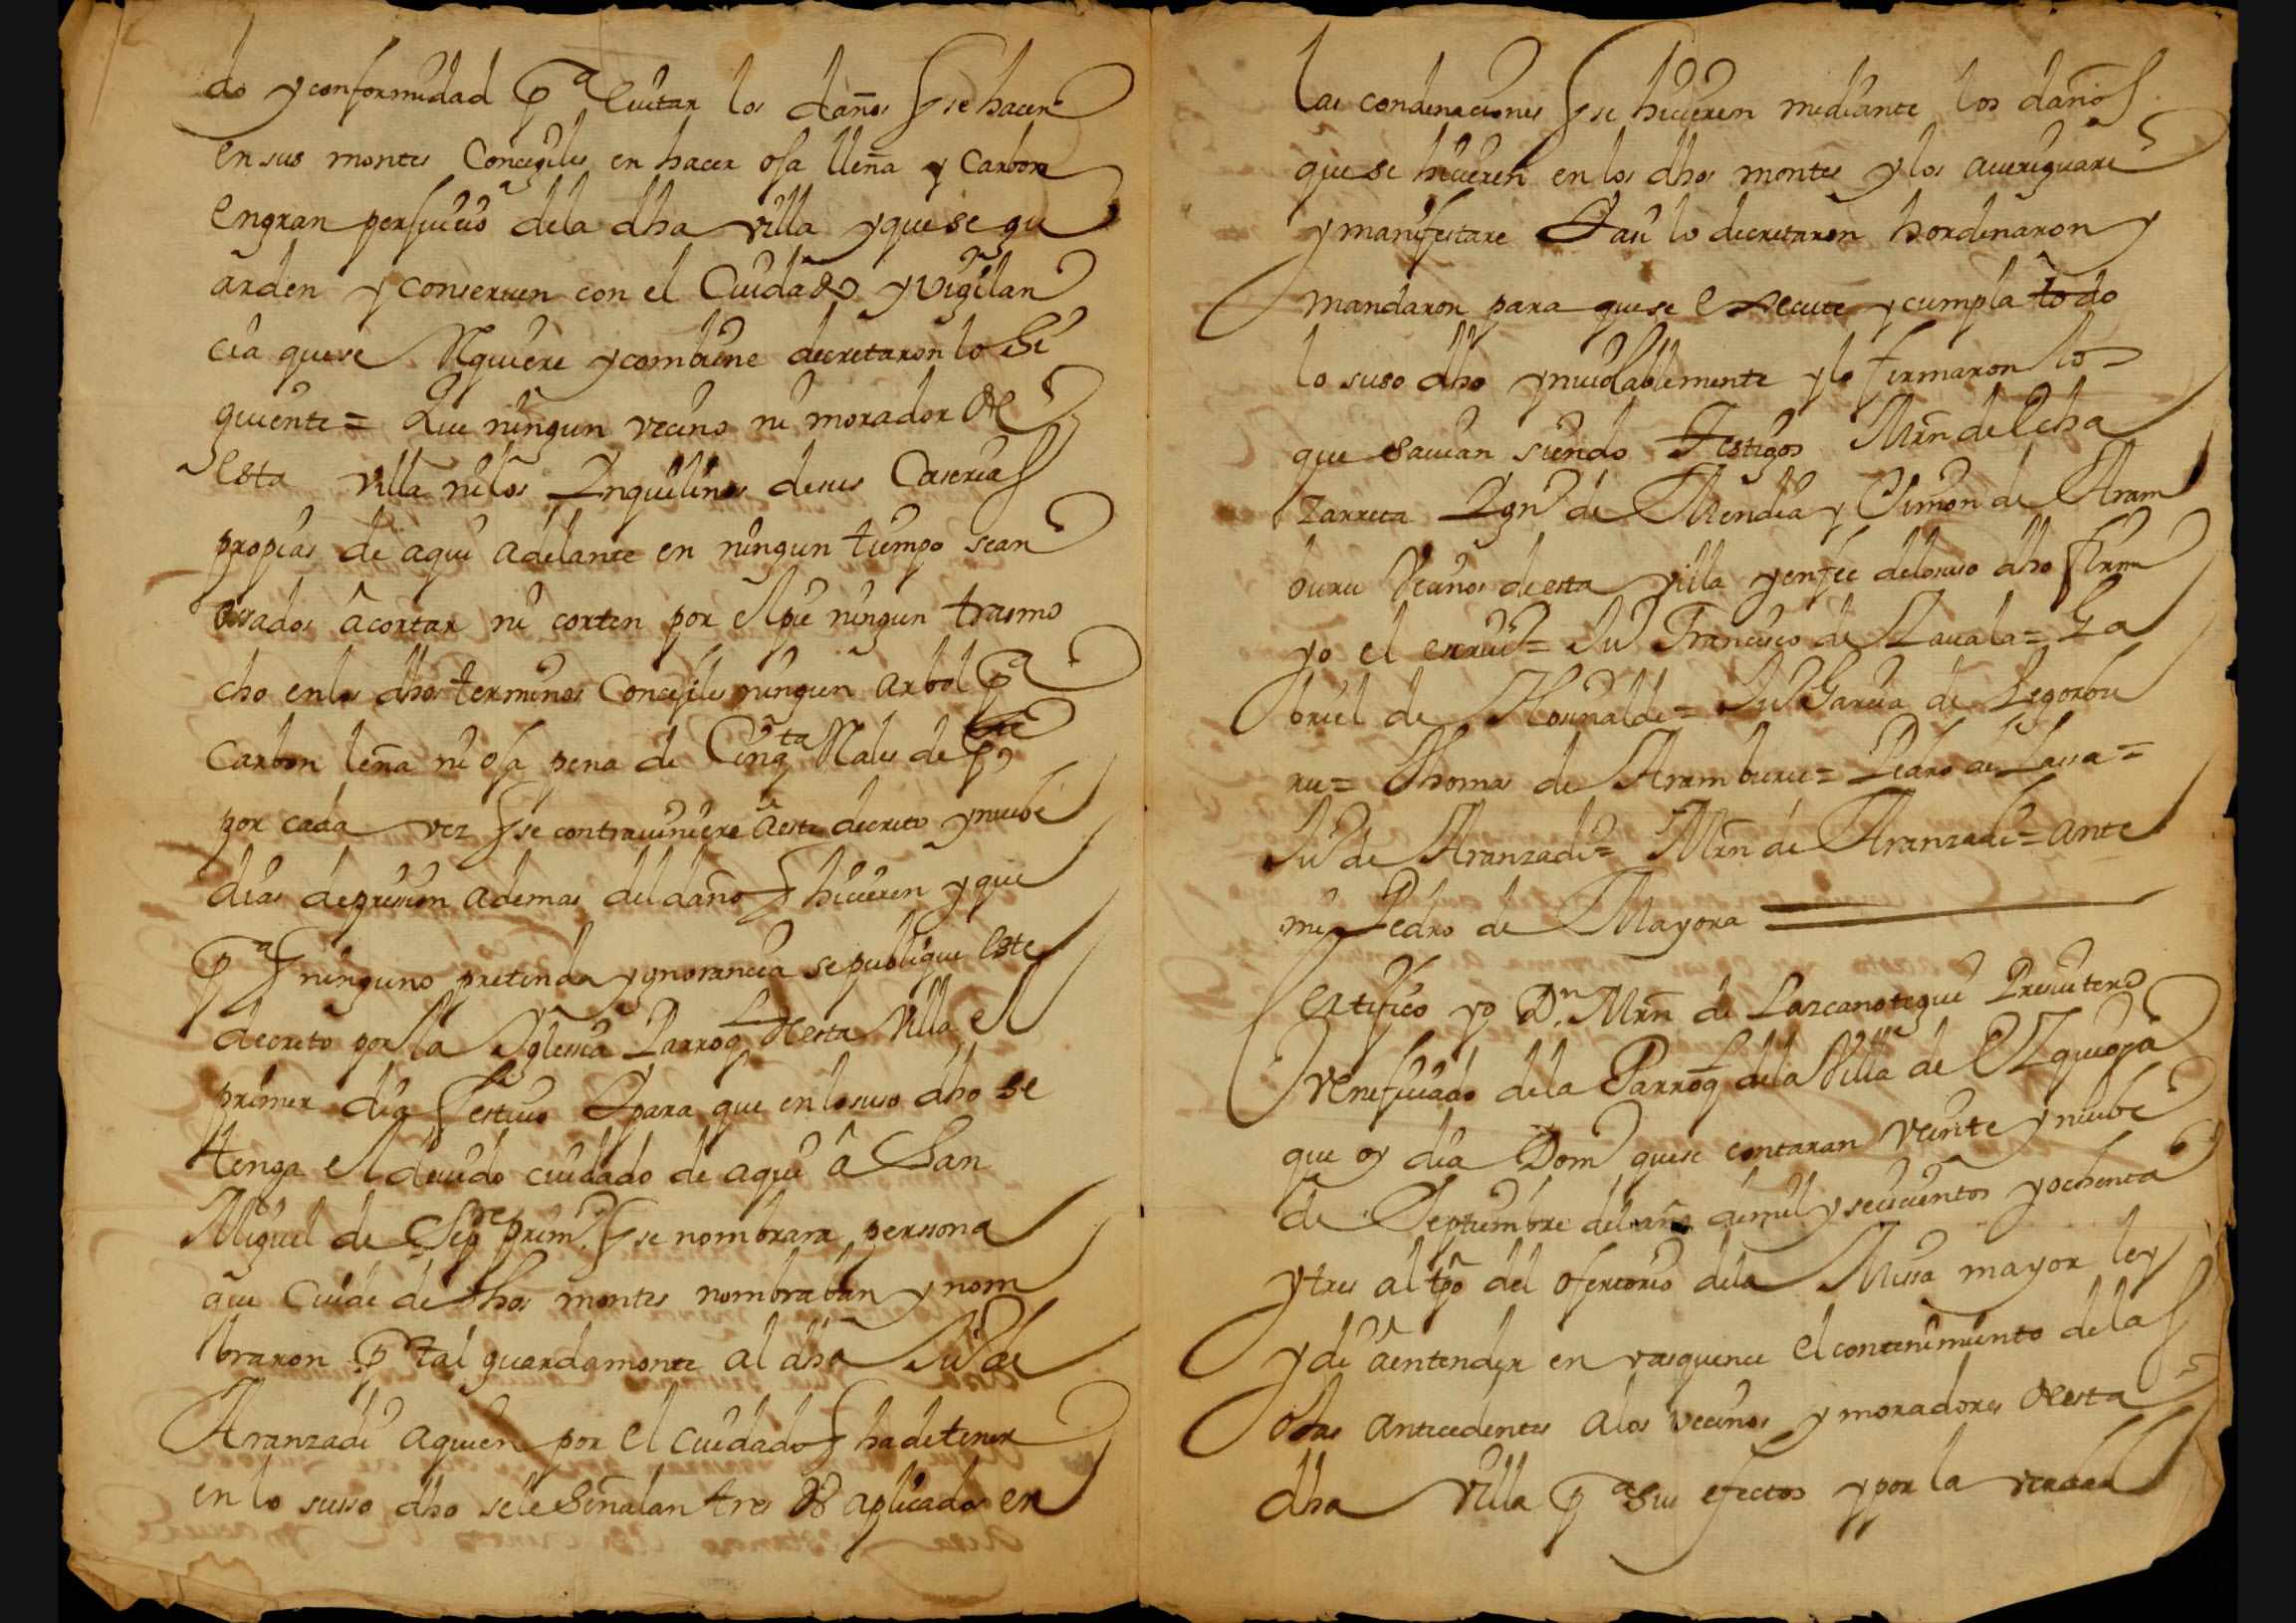 do y conformidad pª Euitar los daños q se hacen
en sus montes Concegiles en hacer oja lleña y Carbon
En gran perjuicio dela dha villa y que se gu
arden y conseruen con el Cuidado y vigilan
cia que se Rquiere y combiene decretaron lo Si
guiente = Que ningun vecino ni morador de
esta villa ni los Inquilinos de sus Caserias
propias de aqui adelante en ningun tiempo sean
osados â cortar ni corten por el pie ningun trasmo
cho en los dhos terminos Concejiles ningun arbol pª
Carbon leña ni oja pena de Cinqta Rales de
por cada vez q se contrauiniere â este decreto y nuebe
dias de prision ademas del daño q hicieren y que
pª q ninguno pretenda ygnorancia se publique Este
decreto por la Yglessia Parroql desta Villa el
primer dia festiuo Y para que en lo suso dho se
tenga el deuido cuidado de aqui â San
Miguel de Sepre primº q se nombrara perssona
que Cuide de dhos montes nombraban y nom
braron p tal guardamonte al dho Juº de
Aranzadi a quien por el cuidado q ha de tener
en lo susso dho se le señalan tres Ds aplicados en
las condenaciones q se hicieren mediante los daños
que se hicieren en los dhos montes y los aueriguare
y manifestare Y asi lo decretaron hordenaron y
mandaron para que se execute y cumpla todo
lo suso dho ynuiolablemente y lo firmaron los
que sauian siendo Testigos Mrn de Echa
zarreta Ygnº de Mendia y Simon de Aram
buru Vecinos de esta villa y en fee delo suso dho firme
yo el escriuº = Juº Francisco de Zauala = Ga
briel de = Juº Garcia de Legorbu
ru = Thomas de Aramburu = Pedro de Lassa =
Juº de Aranzadi = Mrn de Aranzadi = ante
mi Pedro de Mayora
Certifico yo Dn. Mrn de Lazcanotegui Presuitero
Veneficiado dela Parroql dela Villa de Ezquioga
que oy dia Domº que se contaran veinte y nuebe
de Septiembre del año de mil y seiscientos y ochenta
y tres al tpo del ofertorio dela Missa mayor ley
y di â entender en vasquence el contenimiento delas
otras antecedentes a los vecinos y moradores desta
dha villa pª sus efectos y por la verdad